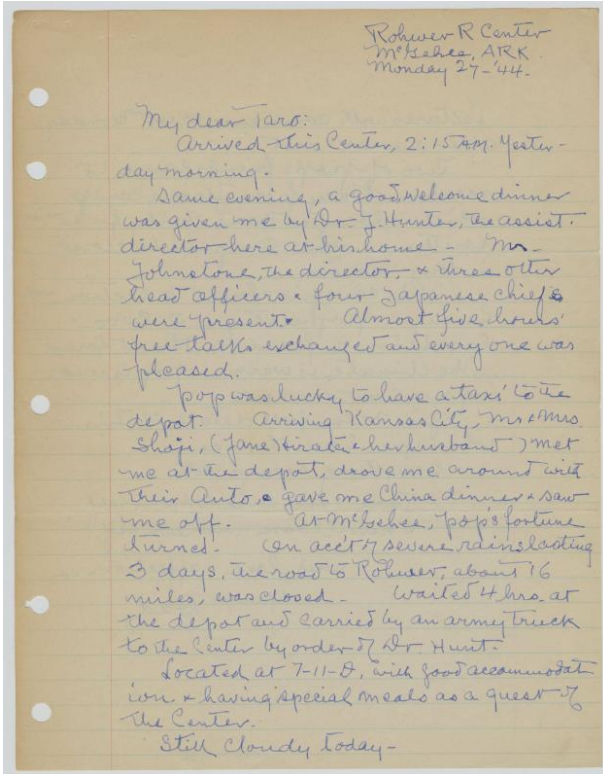 Rohwer R Center
McGehee, ARK
Monday 27-'44.
My dear Taro:
Arrived this Center, 2:15 AM. Yester-
day morning.
Same evening, a good welcome dinner
was given me by Dr. J. Hunter, the assist.
director here at his home - Mr.
Johnstone, the director, & three other
head officers & four Japanese chiefs
were present. Almost five hours'
free talks exchanged and every one was
pleased.
Pop was lucky to have a taxi to the
depot. Arriving Kansas City, Mr & Mrs.
Shoji, (Jane) Hirata & her husband) met
me at the depot, drove me around with
their Auto, & gave me China dinner & saw
me off. At McGehee, pop's fortune
turned. On acc't of severe rains lasting
3 days, the road to Rohwer, about 16
miles, was closed - Waited 4 hrs. at
the depot and carried by an army truck
to the Center by order of Dr. Hunt.
Located at 7-11-D, with good accommodat
ion. & having special meals as a guest of
the Center.
Still Cloudy today -